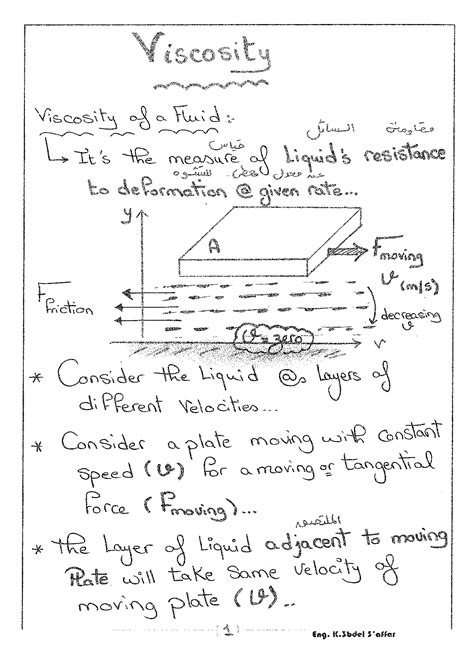 Viscosity
Viscosity of a Fluid:-
مقاومة السائل قياس
↳ It's the measure of Liquid's resistance
عند معدل معطى للتشوه
to deformation @ given rate...
y
A
Fmoving
v (m/s)
Ffriction
decreasing
v
v = zero
v
* Consider the Liquid @s Layers of
different Velocities...
* Consider a plate moving with constant
speed (v) for a moving or tangential
force (Fmoving)...
الملتصقة
* the Layer of Liquid adjacent to moving
Plate will take Same velocity of
moving plate (v)..
(1)
Eng. K.3bdel S'affar